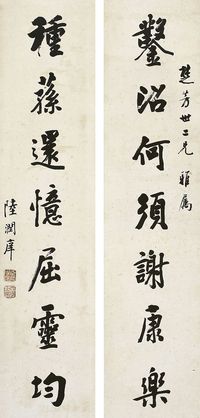 鑿沼何須謝康樂
楚芳世二兄 雅属
種蓀還憶屈靈均
陸潤庠